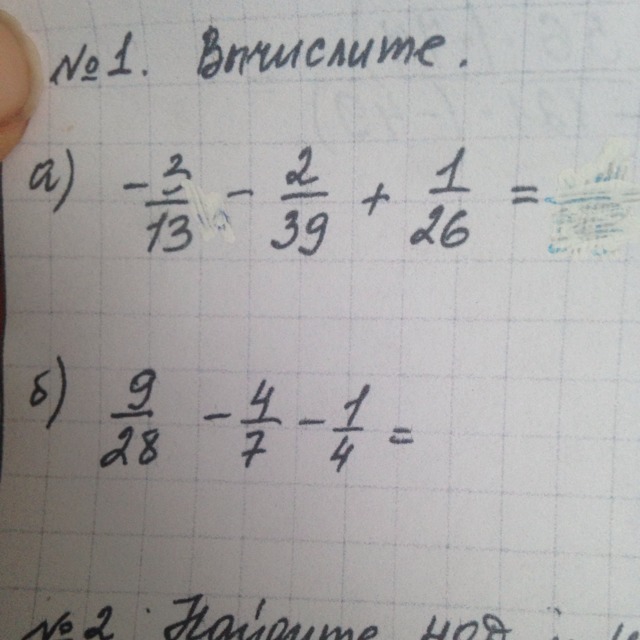 №1. Вычислите.
а) - 2/13 - 2/39 + 1/26 =
б) 9/28 - 4/7 - 1/4 =
№2. Найдите НОД